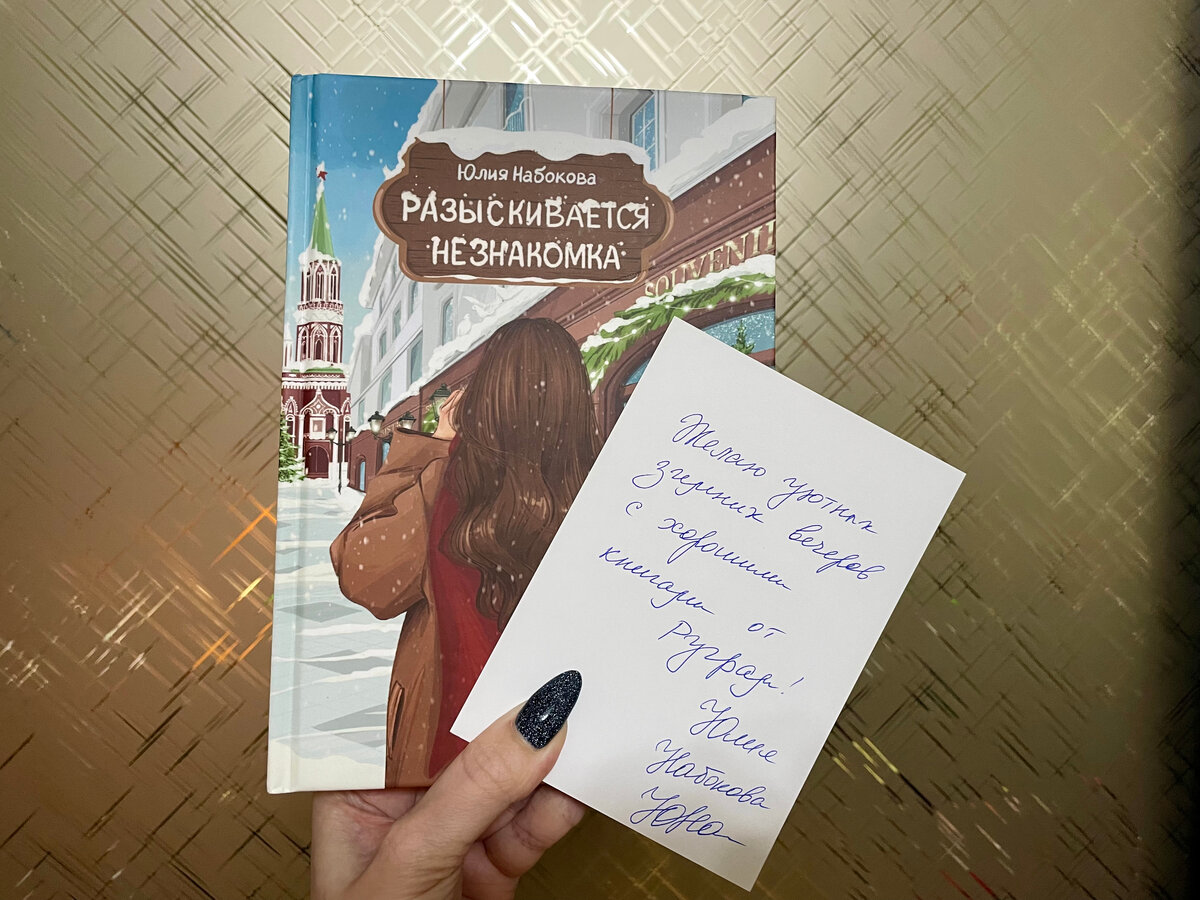 Юлия Набокова
РАЗЫСКИВАЕТСЯ
НЕЗНАКОМКА
SOUVENI
Желаю уютных
зимних вечеров
с хорошими
книгами от
Руграм!
Юлия
Набокова
ЮНа